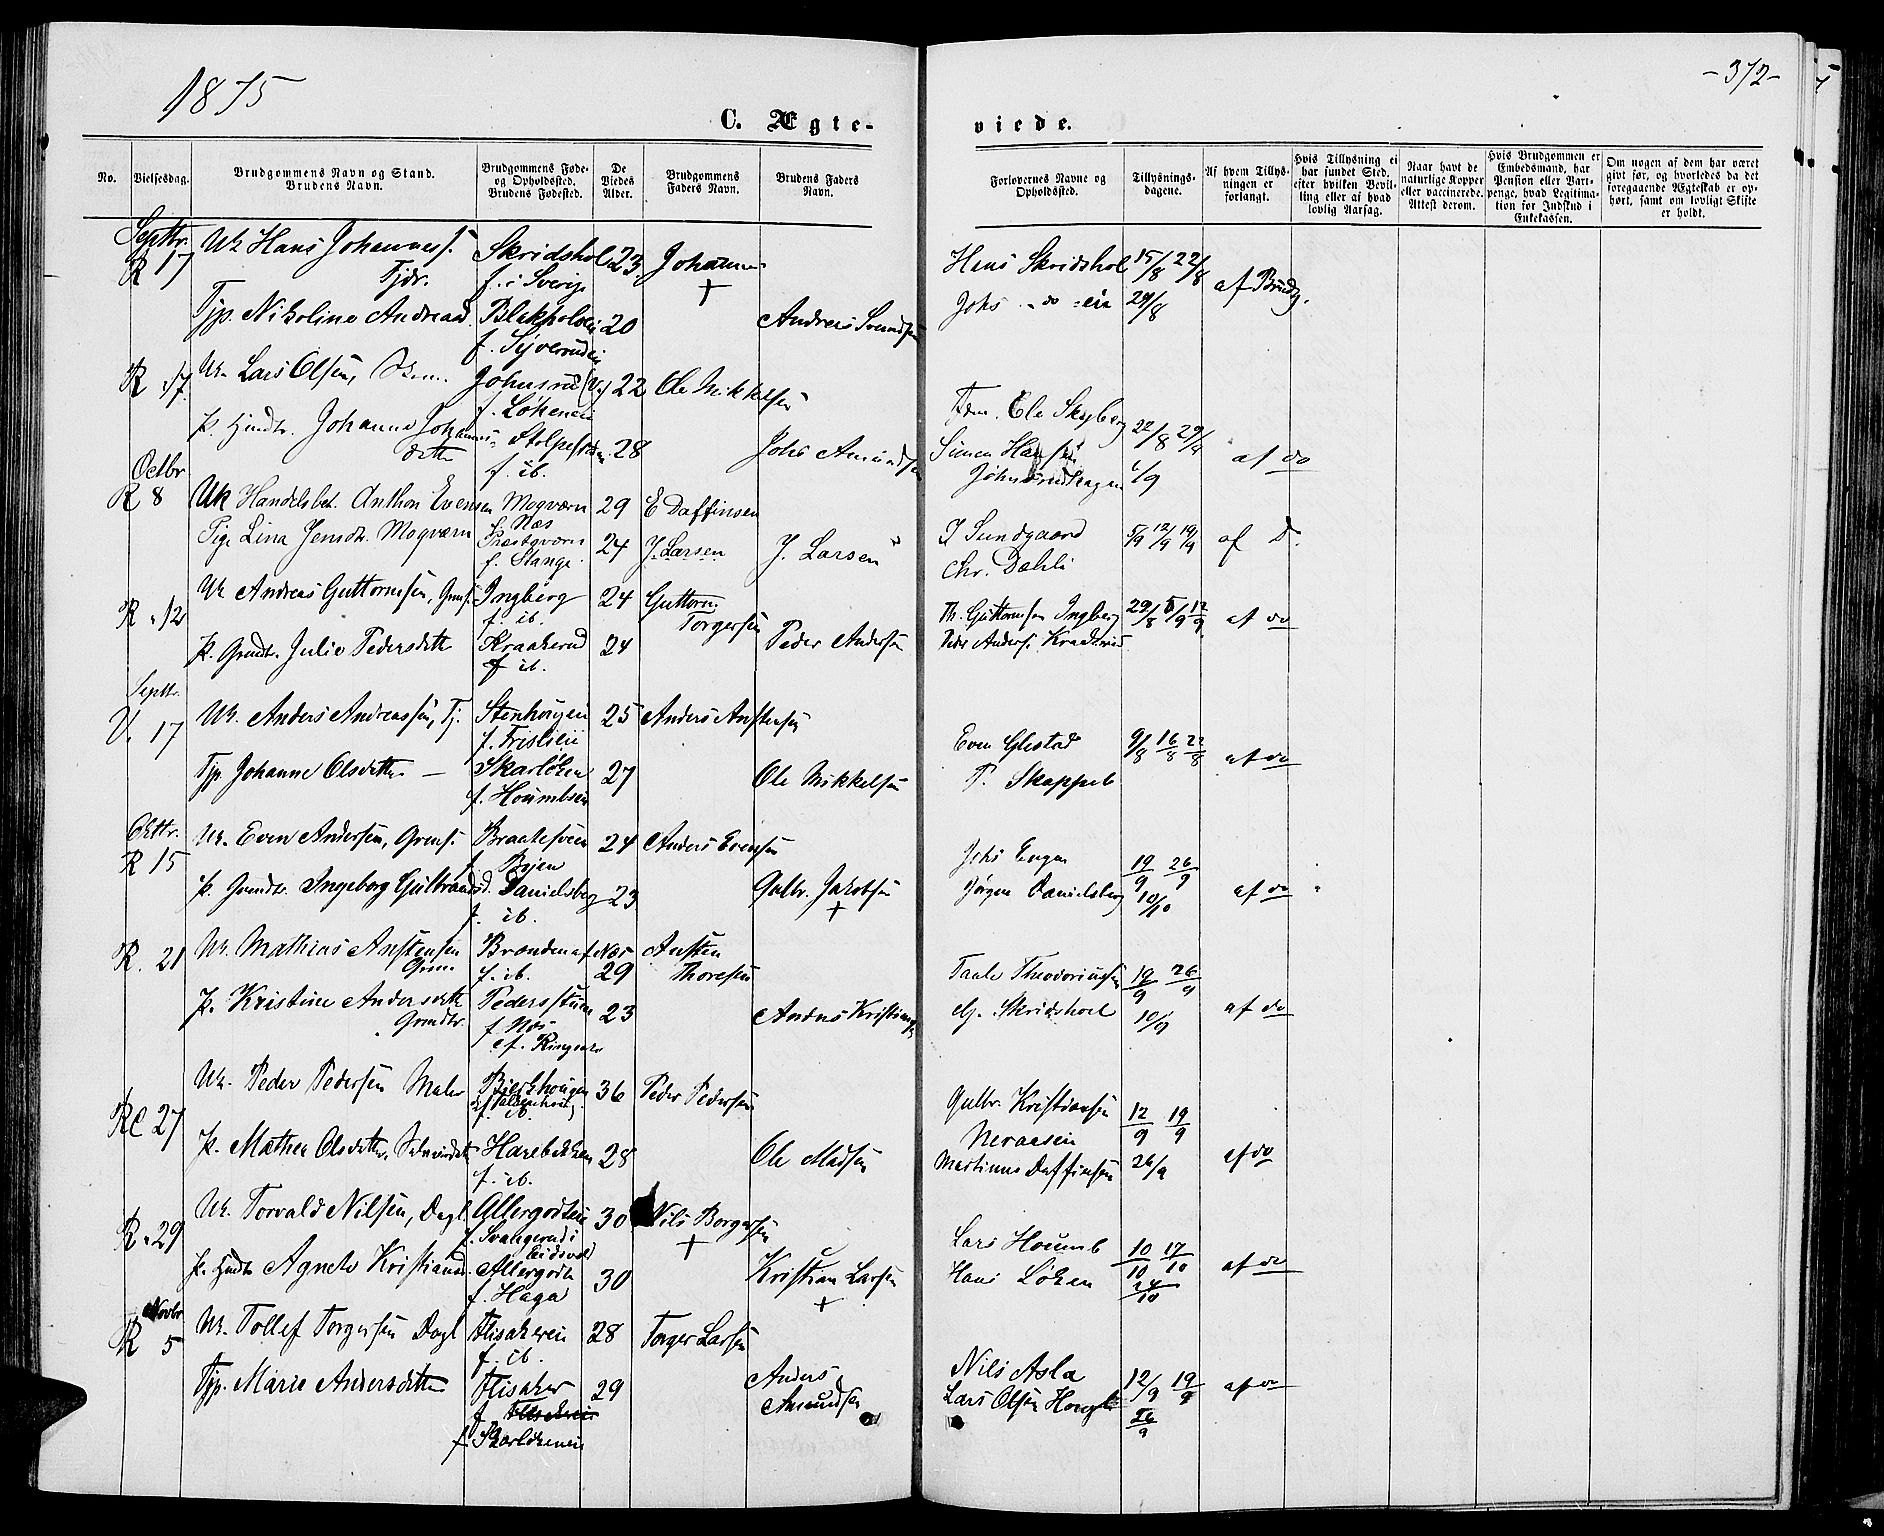 1875
-372-
C. Ægte-
viede.
No.
Vielsesdag.
Brudgommens Navn og Stand.
Brudens Navn.
Brudgommens Føde-
og Opholdssted.
Brudens Fødested.
De
Viedes
Alder.
Brudgommens
Faders Navn.
Brudens Faders
Navn.
Forlovernes Navne og
Opholdssted.
Tillysnings-
dagene.
Af hvem Tillys-
ningen er
forlangt.
Hvis Tillysning ei
har fundet Sted,
efter hvilken Bevil-
ling eller af hvad
lovlig Aarsag.
Naar havt de
naturlige Kopper
eller vaccinerede.
Attest derom.
Hvis Brudgommen er
Embedsmand, har
Pension eller Vart-
penge, hvad Legitima-
tion for Indskud i
Enkekassen.
Om nogen af dem har været
givt før, og hvorledes da det
foregaaende Ægteskab er op-
hørt, samt om lovligt Skifte
er holdt.
Septbr.
R 17 Uk Hans Johanness. Skridshol 23 Johannes Hans Skridshol 15/8 22/8 af Brudg.
Tjdr. f. i Sverig +
Tjp. Nikoline Andreasd. 20 Andreas Svendsen Johs - do - 29/8
R 17 Uk. Lars Olsen, Johnsrud 22 Ole Mikkelsen
f. Løkeneie Ole Skyberg
p. Johanne Johannes- 28 Johs Amundsen Simen Hansen 22/8 29/8 af do
datter f. ib. /9
Octbr
R 8 Uk Handelsbet. Anthon Evensen Mogværn 29 E Daffinsen
f. Næs
Pige Lina Jensdtr. Mogværn 24 J. Larsen J. Larsen I Sundgaard 5/9 12/9 19/9 af D.
f. Stange. Chr. Dæhli
R 12 Uk Andreas Guttormsen, Ingberg 24 Guttorm Th. Guttormsen Ingberg 29/8 5/9 12/9 af do
f. ib. Torgersen
p. Grmdtr. Julie Pedersdatter Kraakerud 24 Peder Andersen Peder Anders. Kraakerud
f ib.
Septbr.
V. 17 Uk. Anders Andreassen, Tj. Stenhougen 25 Anders Anstensen
Even Glestad 9/8 16/8 22/8 af do
Tjp Johanne Olsdatter - Skarløken 27 Ole Mikkelsen P. Skappel
f. Houmbseie
Oktbr.
R 15 Uk. Even Andersen, Grms. Braatesveen 24 Anders Evensen Johs Engen 19/9 26/9
f Byen
p. Grmdtr. Ingeborg Gulbrandsd. Danielsberg 23 Gulbr. Jakobsen Jørgen Danielsberg 10/10 af do
f. ib. +
R. 21 Uk. Mathias Anstensen Brænden af Næs Ansten
Grms. f. ib. 29 Thoresen Taale Theodoriussen 19/9 26/9
p. Kristine Andersdatter Pedersstuen 23 Anders Kristians Skridshoel 10/ af do
Grmdtr. f. Næs
af. Ringsaker
RC 27 Uk. Peder Pedersen Maler Bjerkhougen 36 Peder Pedersen Gulbr. Kristiansen 12/9 19/9
f. ib. Neraasen
p. Mathea Olsdatter, Harebakken 28 Ole Madsen Martinus Daffinsen 26/9 af do
f. ib.
R. 29 Uk. Torvald Nilsen, Dagl. Allergodt 30 Nils Borgersen Lars Houmb 10/10 17/10
f. Svangerud i +
Eidsvold
p. Agnete Kristiansd. Allergodt 30 Kristian Larsen Hans Løken 24/10 af do
f. Haga +
Novbr
R 5 Uk. Tollef Torgersen Dagl Flisakereie 28 Torger Larsen
f. ib.
Tjp. Marie Andersdatter Flisaker 29 Anders Nils Asla 12/9 19/9 af do
f. Amundsen Lars Olsen 26/9
f. Skarløkeneie